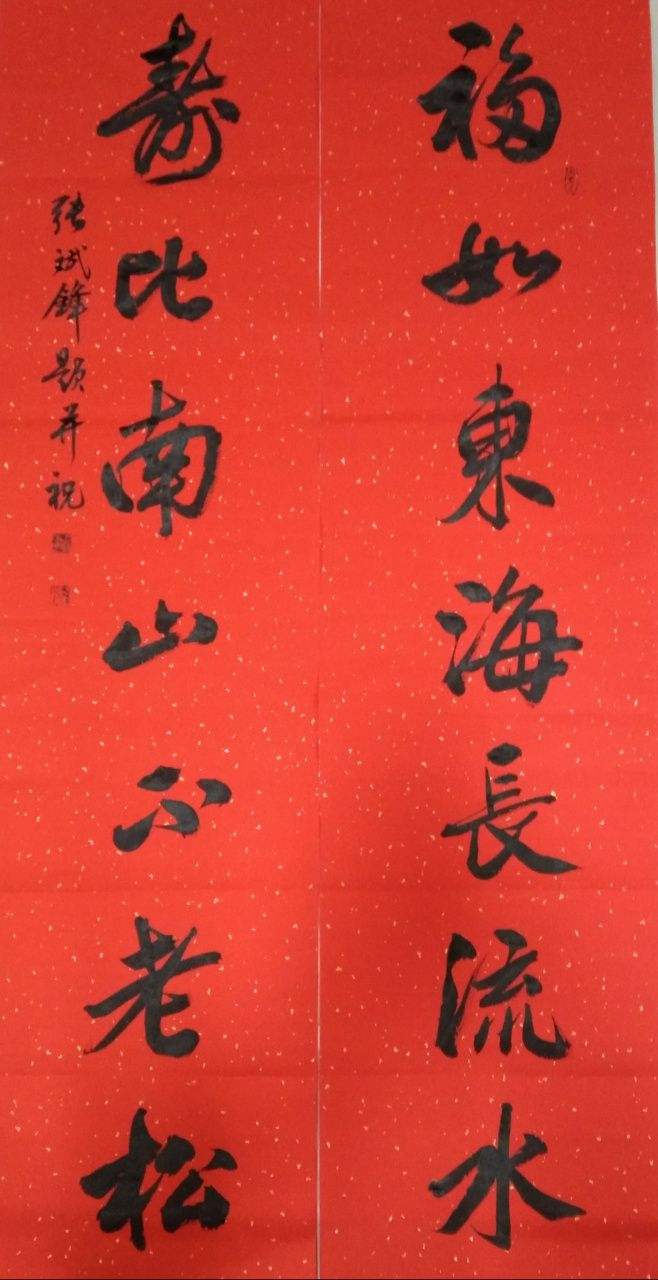 福如東海長流水
壽比南山不老松
张斌鋒題并祝